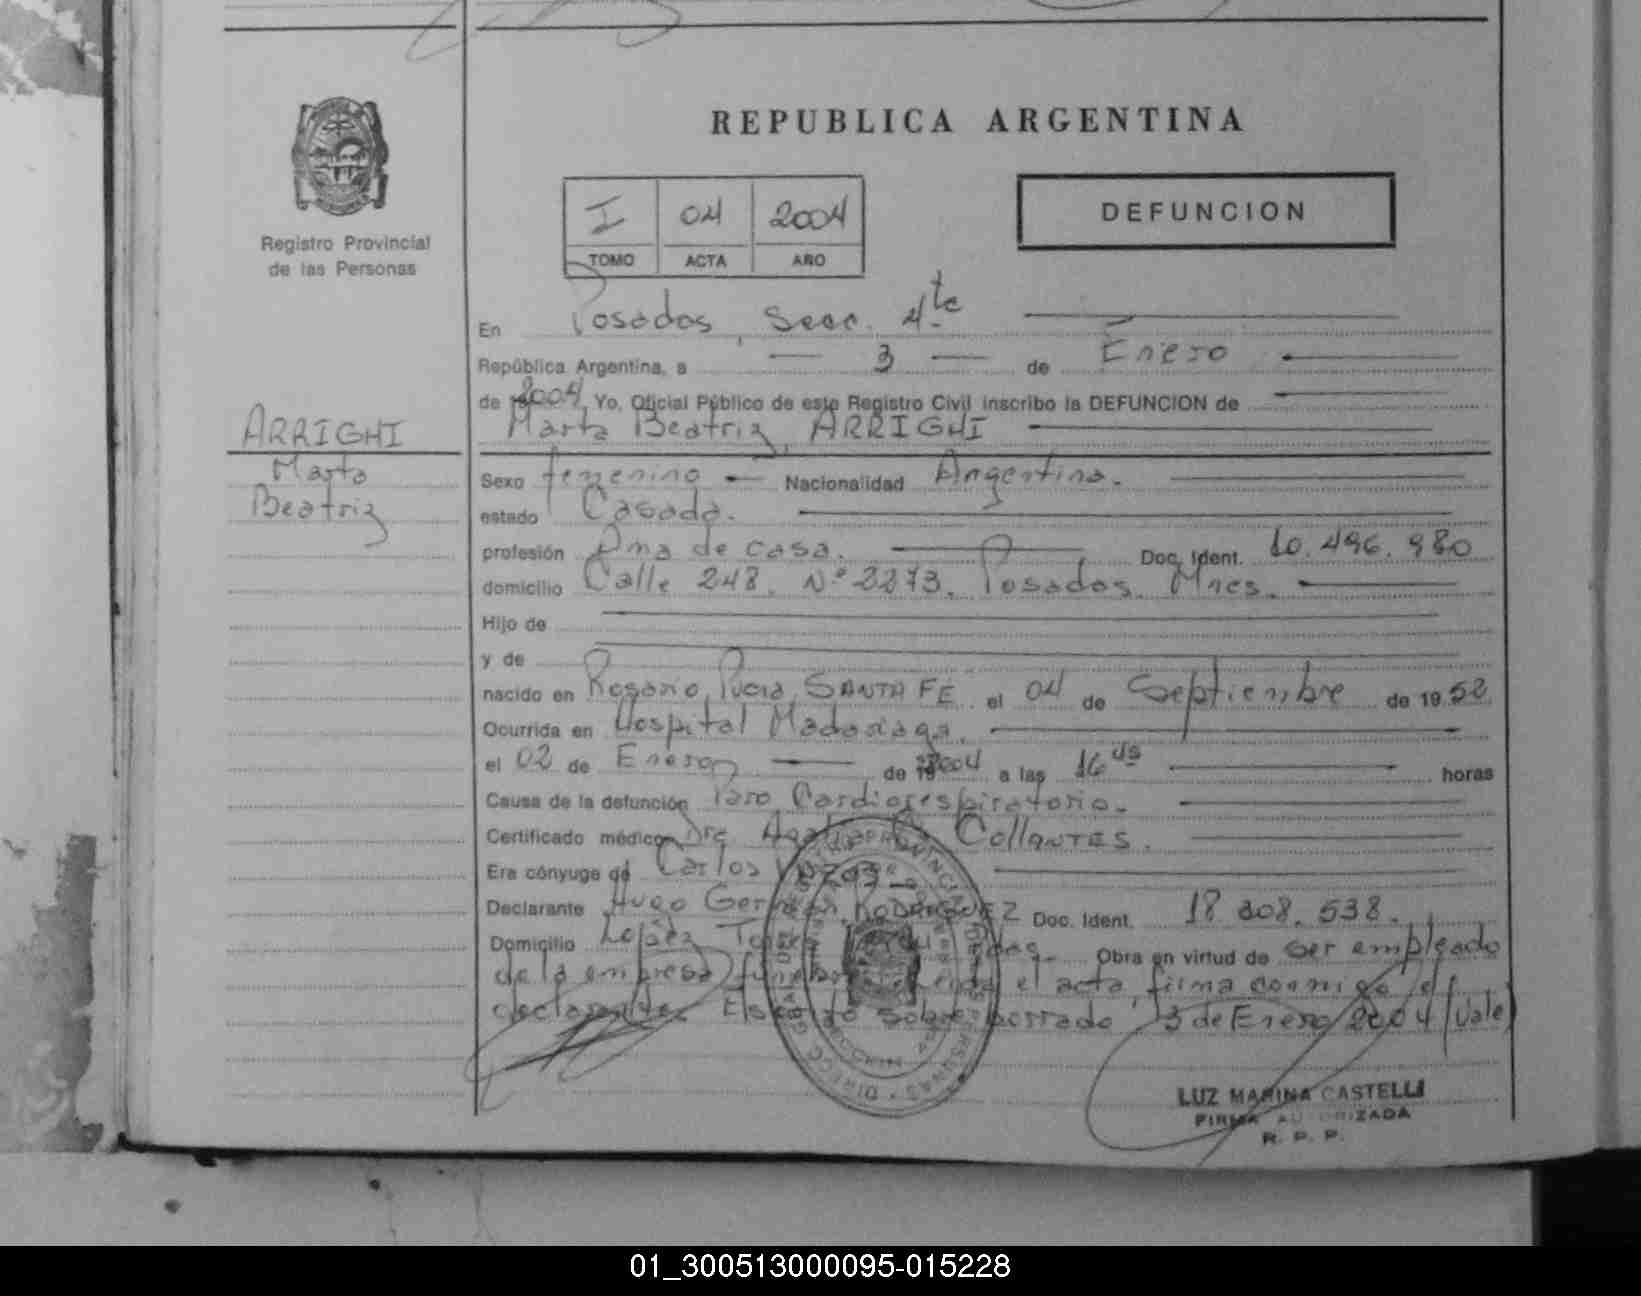 REPUBLICA ARGENTINA
I 04 2004
TOMO ACTA AÑO
DEFUNCION
Registro Provincial
de las Personas
En Posadas, Secc. 4ta
República Argentina, a 3 de Enero
de 2004, Yo, Oficial Público de este Registro Civil inscribo la DEFUNCION de
Marta Beatriz ARRIGHI
ARRIGHI
Marta
Beatriz
Sexo femenino Nacionalidad Argentina.
estado Casada.
profesión Ama de casa. Doc. Ident. 10.496.980
domicilio Calle 248. Nº 2273. Posadas. Mnes.
Hijo de
y de
nacido en Rosario, Pvcia, SANTA FE el 04 de Septiembre de 19 52
Ocurrida en Hospital Madariaga.
el 02 de Enero de 2004 a las 16 horas
Causa de la defunción Paro Cardiorespiratorio.
Certificado médico Dra COLLANTES.
Era cónyuge de Carlos
Declarante Hugo Germán RODRIGUEZ Doc. Ident. 18.308.538.
Domicilio López Obra en virtud de ser empleado
de la empresa Leída el acta, firma conmigo el
declarante. Escrito sobre borrado "3 de Enero 2004" Vale
LUZ MARINA CASTELLI
FIRMA AUTORIZADA
R. P. P.
01_300513000095-015228